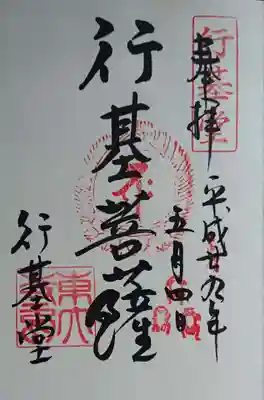 奉拝
平成廿九年
五月四日
行基菩薩
行基堂
行基堂